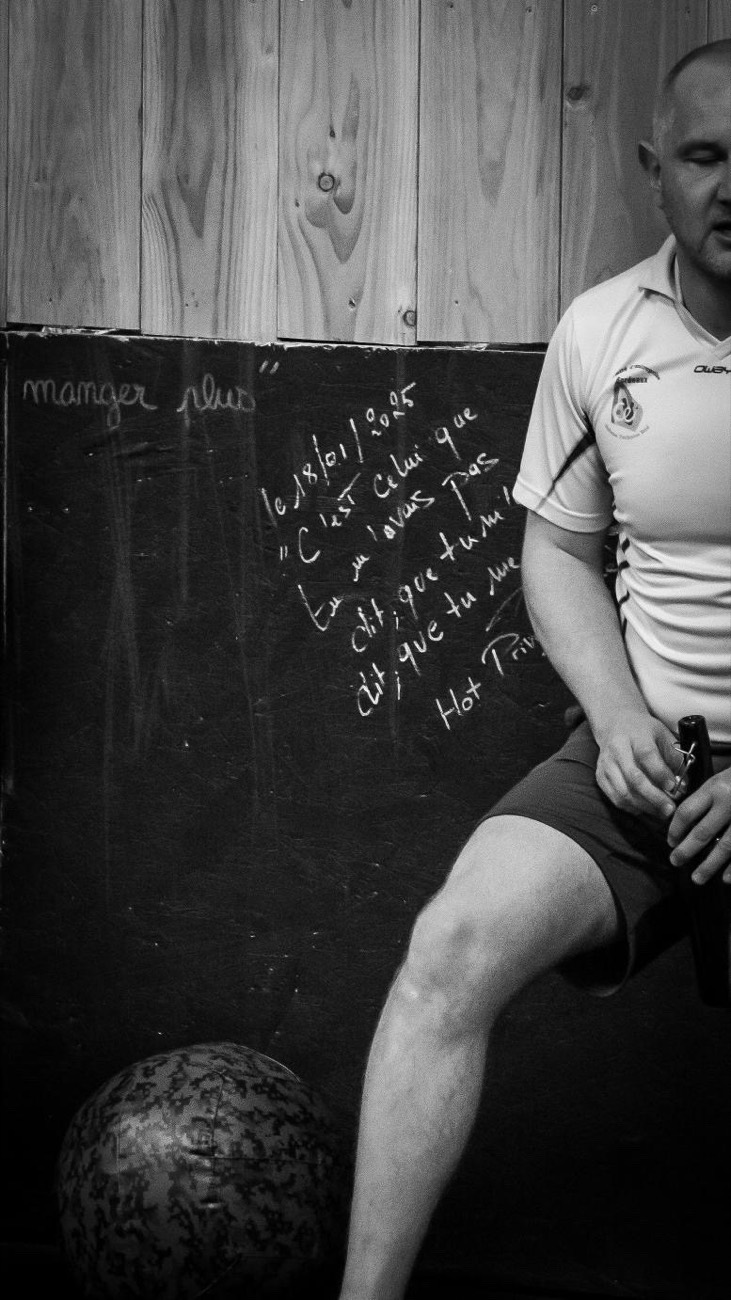 manger plus"
le 18/01/2025
"C'est celui que
tu m'avais pas
dit, que tu m'
dit, que tu me
Hot
OWAY